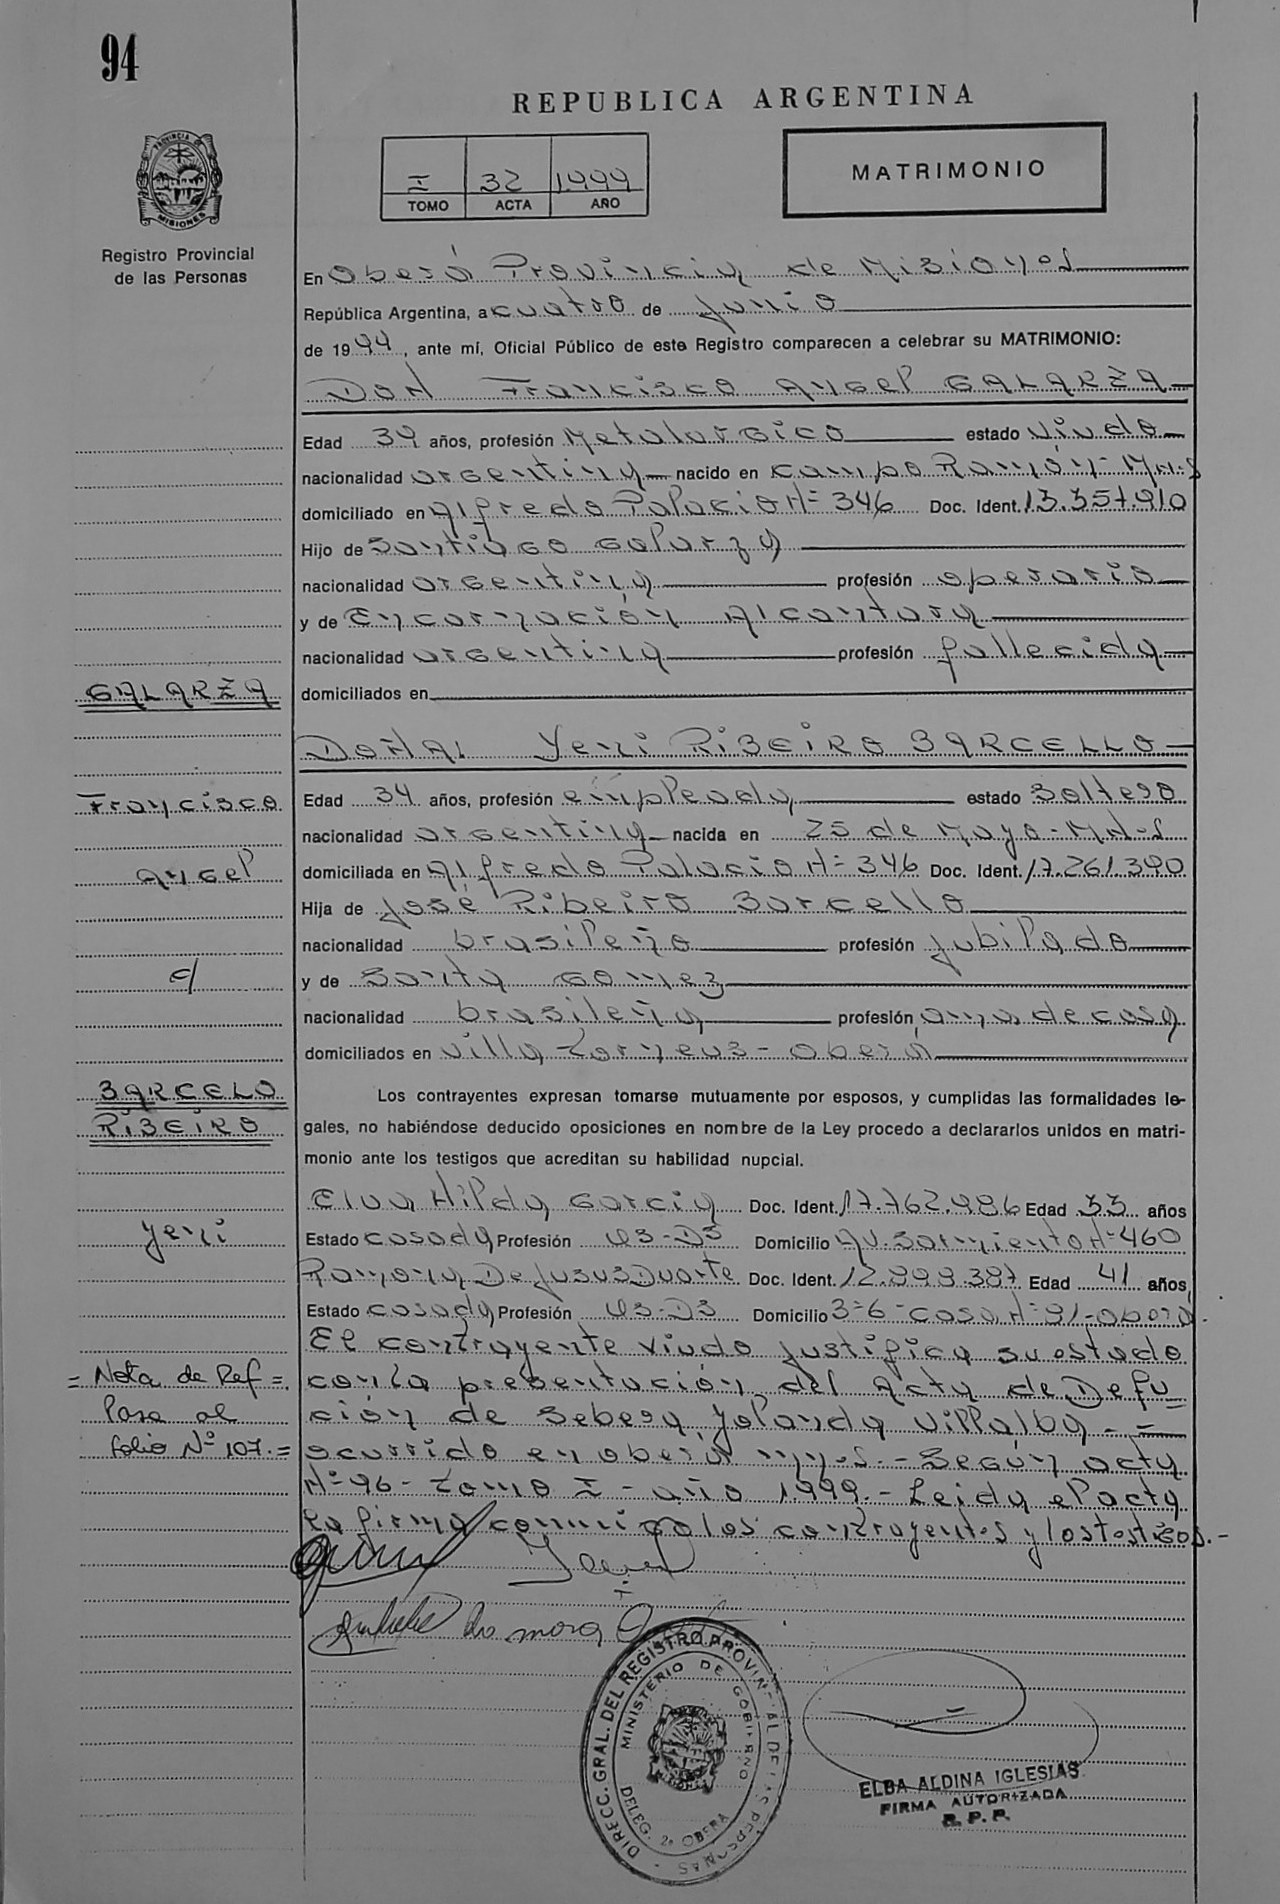 94
REPUBLICA ARGENTINA
PROVINCIA DE MISIONES
Registro Provincial
de las Personas
I 32 1999
TOMO ACTA AÑO
MATRIMONIO
En Oberá Provincia de Misiones
República Argentina, a cuatro de junio
de 1999, ante mí, Oficial Público de este Registro comparecen a celebrar su MATRIMONIO:
DON Francisco Angel GALARZA
Edad 39 años, profesión Metalurgico estado viudo
nacionalidad argentina nacido en Campo Ramón - Mnes
domiciliado en Alfredo Palacio Nº 346 Doc. Ident. 13.357.910
Hijo de Santiago Galarza
nacionalidad argentina profesión operario
y de Encarnación Alcantara
nacionalidad argentina profesión fallecida
domiciliados en
DOÑA Yeni RIBEIRO BARCELLO
Edad 34 años, profesión empleada estado soltera
nacionalidad argentina nacida en 25 de Mayo - Mnes
domiciliada en Alfredo Palacio Nº 346 Doc. Ident. 17.261.390
Hija de José Ribeiro Barcello
nacionalidad brasileño profesión jubilado
y de Santa Gomez
nacionalidad brasileña profesión ama de casa
domiciliados en Villa - Oberá
Los contrayentes expresan tomarse mutuamente por esposos, y cumplidas las formalidades le-
gales, no habiéndose deducido oposiciones en nombre de la Ley procedo a declararlos unidos en matri-
monio ante los testigos que acreditan su habilidad nupcial.
Elva Hilda Garcia Doc. Ident. 17.762.986 Edad 33 años
Estado casada Profesión Domicilio Av. Sarmiento Nº 460
Ramona De Jusus Duarte Doc. Ident. 12.898.387 Edad 41 años
Estado casada Profesión Domicilio Casa Nº 91 - Oberá
El contrayente viudo justifica su estado
con la presentación del acta de Defu
ción de Yolanda Villalba - =
ocurrido en Oberá Mnes. - Según acta
Nº 96 - Tomo I - año 1.999. - Leida el acta
la firma conmigo los contrayentes y los testigos. -
GALARZA
Francisco
Angel
c/
BARCELO
RIBEIRO
Yeni
= Nota de Ref =
Pasa al
folio Nº 107. =
DIRECC. GRAL. DEL REGISTRO PROVINCIAL DE LAS PERSONAS
MINISTERIO DE GOBIERNO
DELEG. 2ª OBERA
ELBA ALDINA IGLESIAS
FIRMA AUTORIZADA
R. P. P.